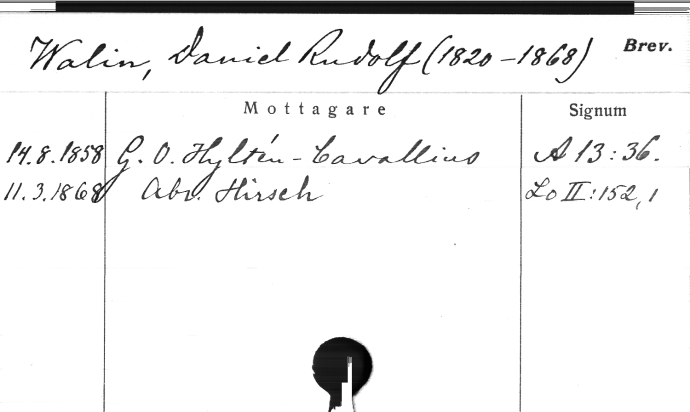 Walin, Daniel Rudolf (1820-1868) Brev.
Mottagare Signum
14.8.1858 G. O. Hyltén-Cavallius A 13:36.
11.3.1868 Abr. Hirsch Lo II:152,1